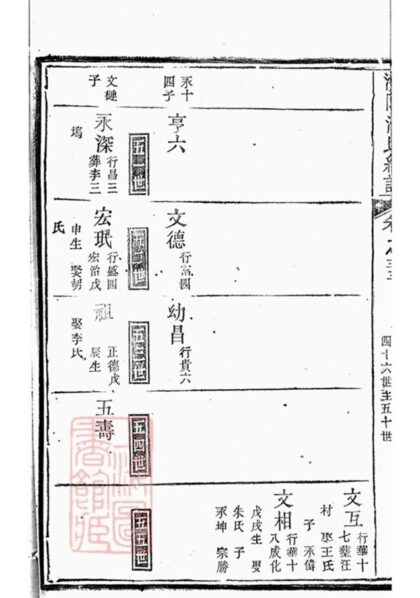 四十六世至五十世
永十
四子
亨六
永深 行昌三
葬李三
塢
子
文德 行富四
宏珉 行盛四
宏治戊
申生 娶胡
氏
幼昌 行貴六
祖 正德戊
辰生
娶李氏
五壽
文互 行華十
七葬汪
村 娶王氏
子 永僖
文相 行華十
八成化
戊戌生 娶
朱氏 子
永坤 宗勝